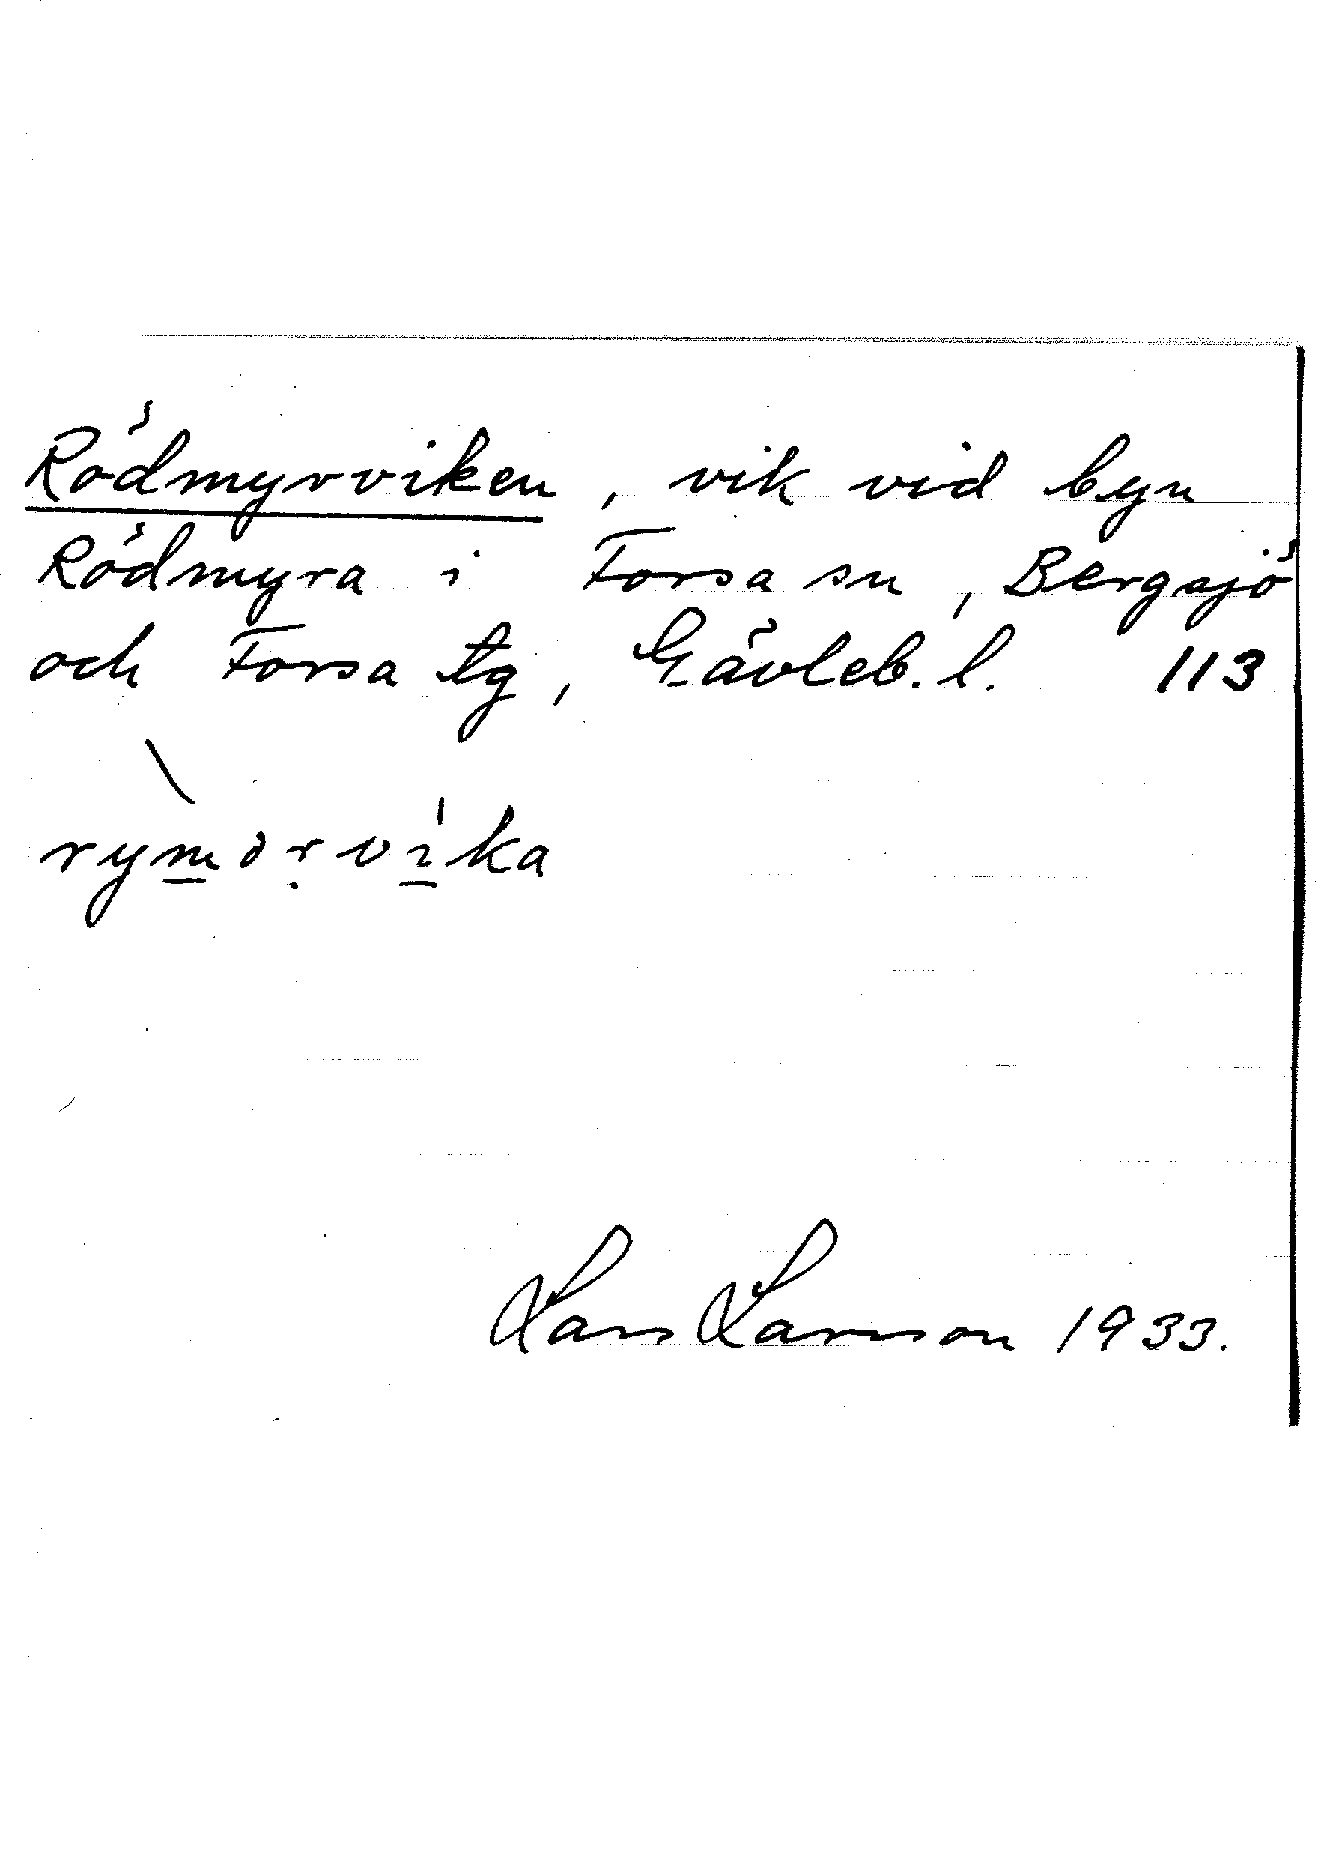 Rödmyrviken, vik vid byn
Rödmyra i Forsa sn, Bergsjö
och Forsa tg, Gävleb. l. 113
rymərvika
Lars Larsson 1933.